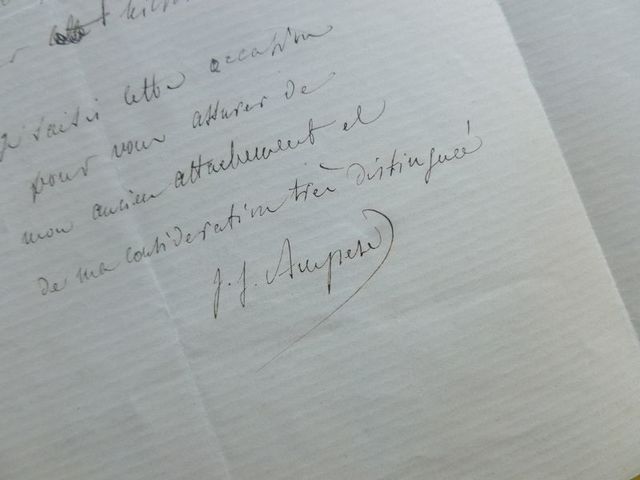 je saisis cette occasion
pour vous assurer de
mon ancien attachement et
de ma consideration très distinguée
J. J. Ampère